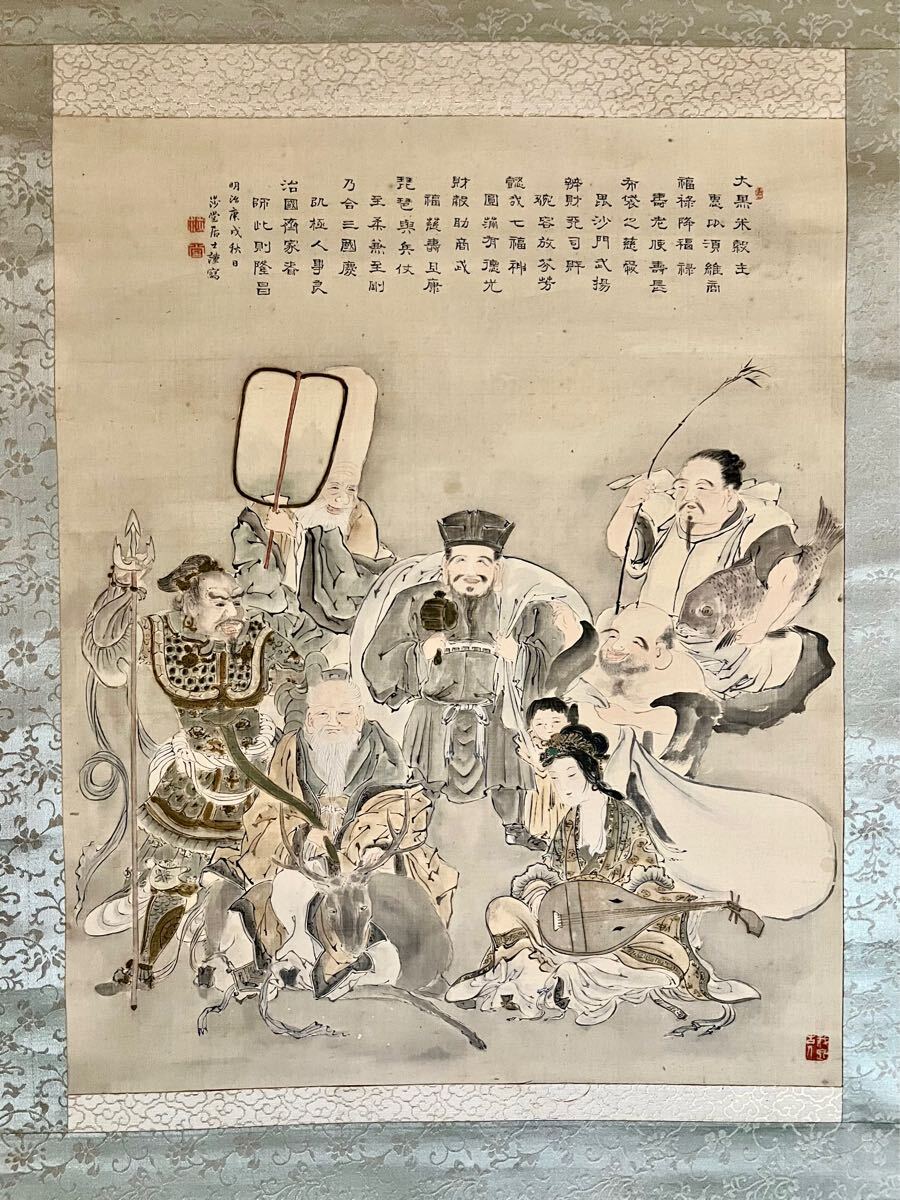 大黒米穀主
惠比須維商
福祿降福祿
壽老使壽長
布袋之慈嚴
毘沙門武揚
辨財司
婉容放芬芳
懿哉七福神
圓滿有德光
財穀助商武
福慈壽且康
琵琶與兵仗
至柔兼至剛
乃合三國慶
極人事良
治國齊家者
師此則隆昌
明治庚戌秋日
堂居士謹寫